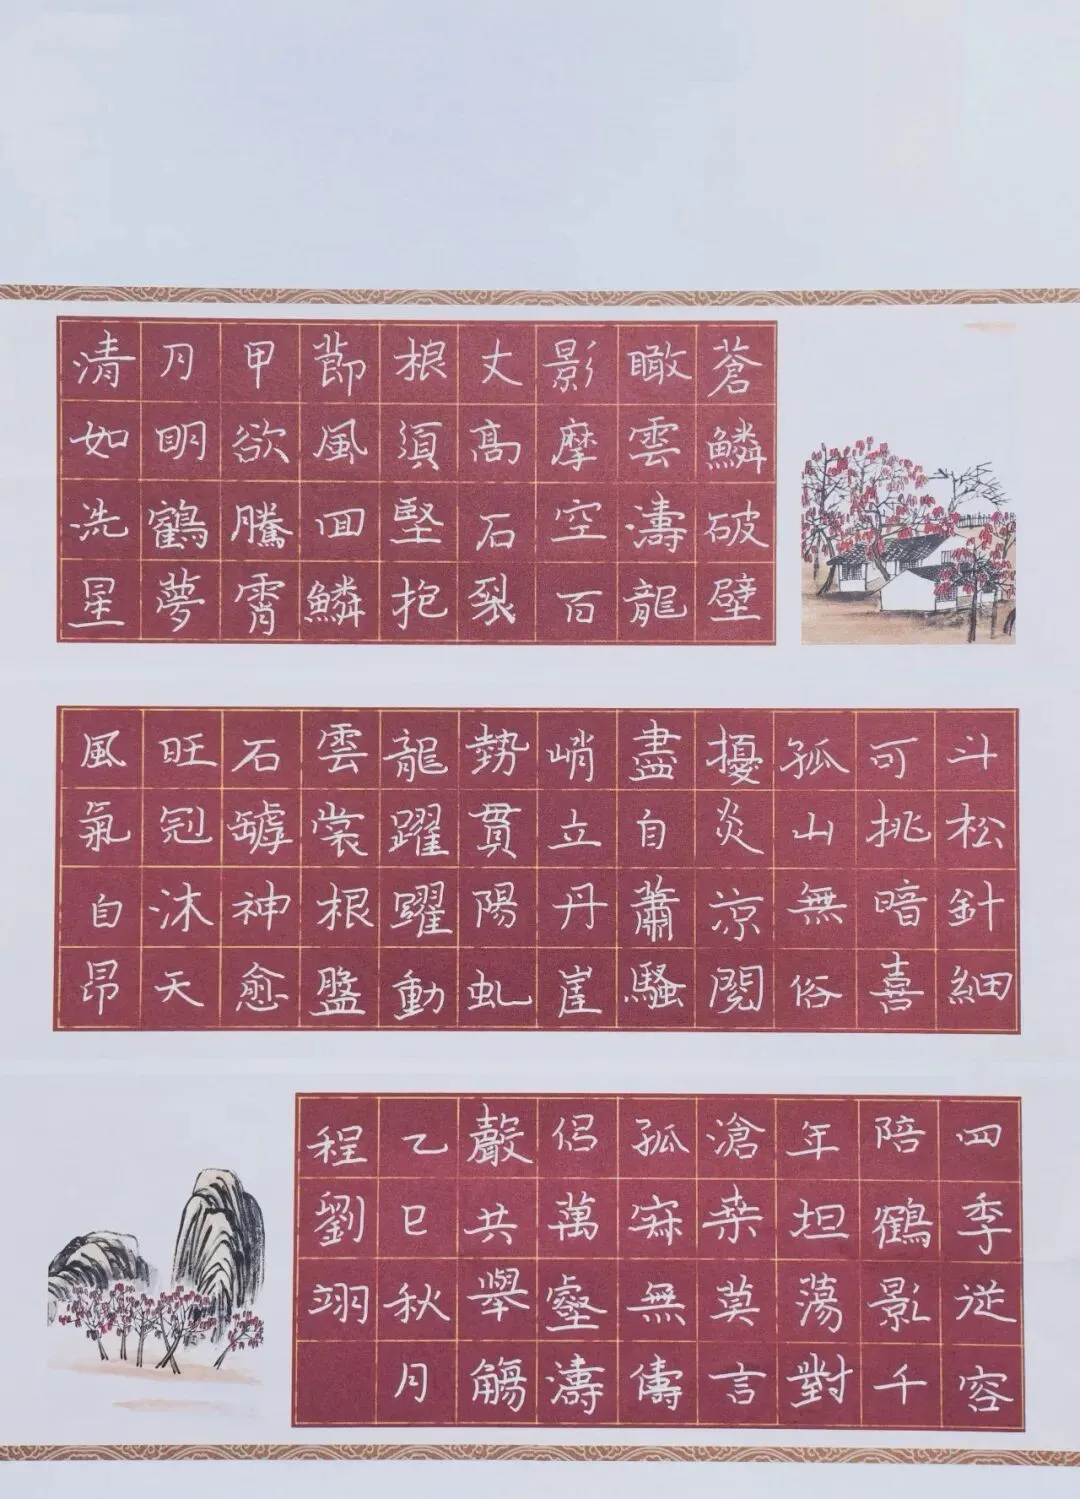 蒼鱗破壁
瞰雲濤龍
影摩空百
丈高石裂
根須堅抱
節風回鱗
甲欲騰霄
月明鶴夢
清如洗星
斗松針細
可挑暗喜
孤山無俗
擾炎涼閱
盡自蕭騷
峭立丹崖
勢貫陽虬
龍躍躍動
雲裳根盤
石罅神愈
旺冠沐天
風氣自昂
四季從容
陪鶴影千
年坦蕩對
滄桑莫言
孤寂無儔
侶萬壑濤
聲共舉觴
乙巳秋月
程劉翊